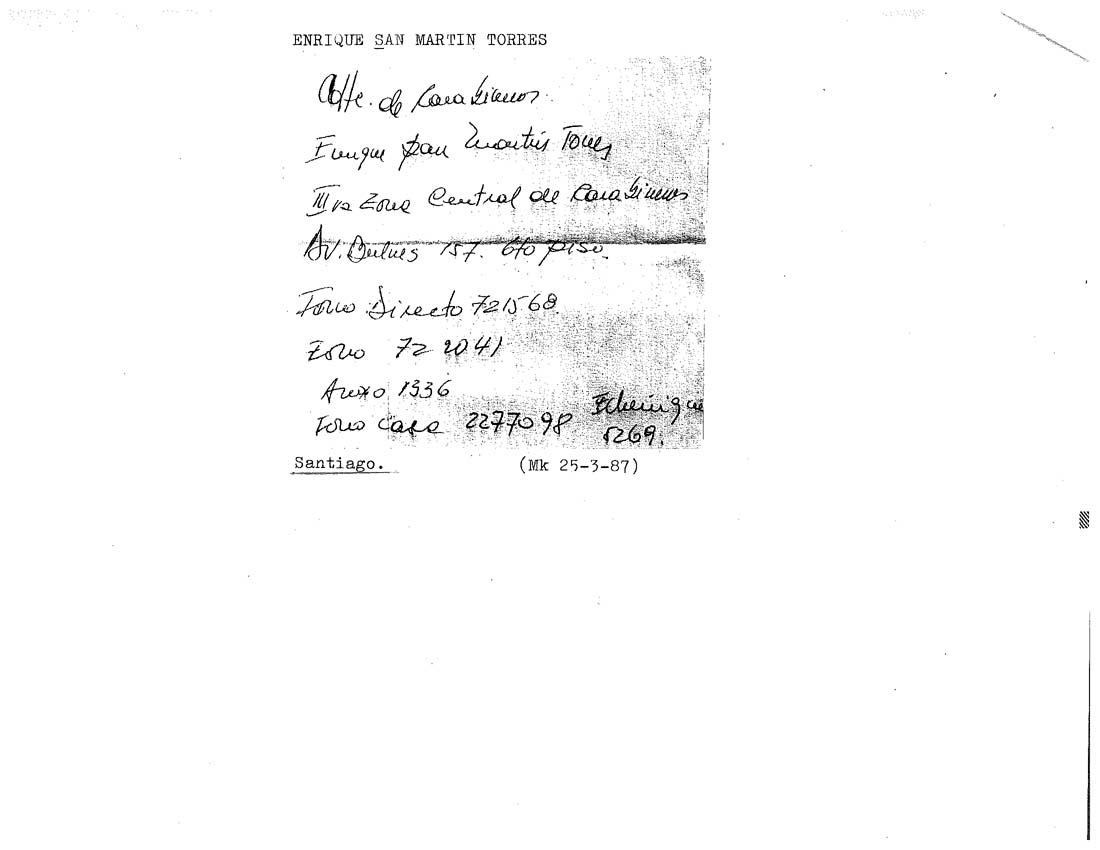 ENRIQUE SAN MARTIN TORRES
Cdte. de Carabineros
Enrique San Martin Torres
III ra Zona Central de Carabineros
Av. Bulnes 157. 6to piso.
Fono Directo 721568.
Fono 722041
Anexo 1336
Fono Casa 2277098 Echenique
5269.
Santiago. (Mk 25-3-87)